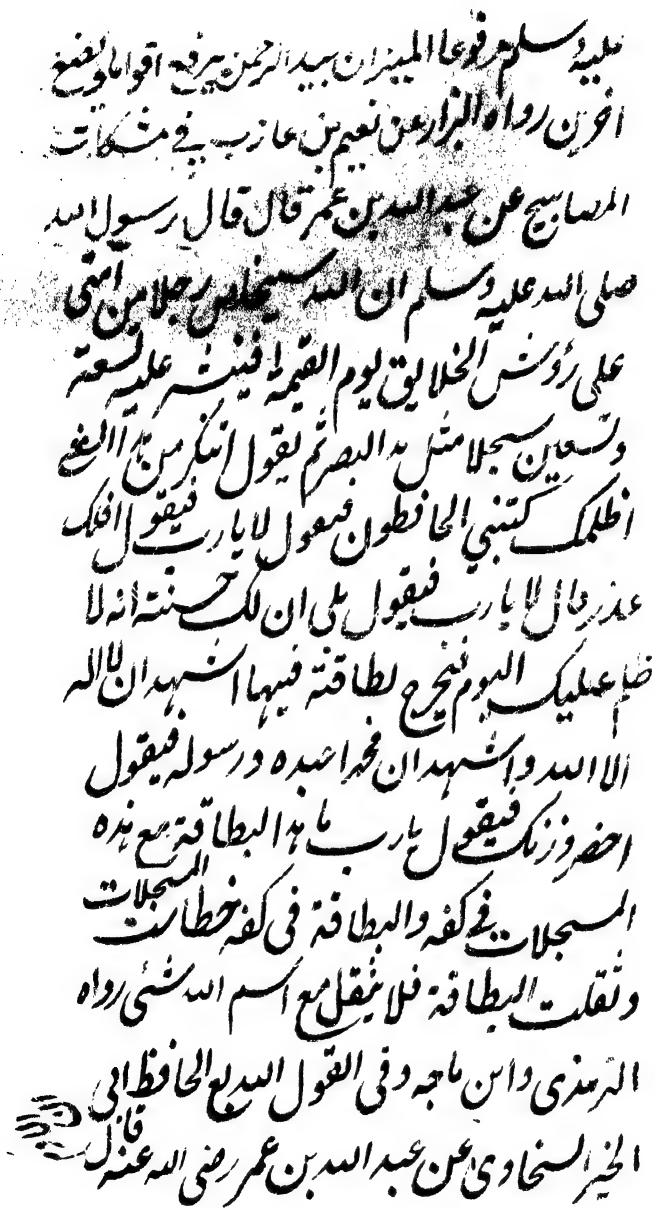 عليه وسلم مرفوعا الميزان بيد الرحمن يرفع اقواما ويضع
اخرين رواه البزار عن نعيم بن عازب في مشكات
المصابيح عن عبد الله بن عمر قال قال رسول الله
صلى الله عليه وسلم ان الله سيخلص رجلا من امتى
على رؤس الخلايق يوم القيمة فينشر عليه تسعة
وتسعين سجلا مثل مد البصر ثم يقول اتنكر من هذا
اظلمك كتبتي الحافظون فيقول لا يارب فيقول افلك
عذر قال لا يارب فيقول بلى ان لك حسنة انه لا
ظلم عليك اليوم فيخرج بطاقة فيها اشهد ان لا اله
الا الله واشهد ان محمدا عبده ورسوله فيقول
احضر وزنك فيقول يارب ما هذا البطاقة مع هذه
السجلات
السجلات في كفه والبطاقة في كفه فطاشت
وثقلت البطاقة فلا يثقل مع اسم الله شئى رواه
الترمذى وابن ماجه وفى القول البديع للحافظ ابى
الخير السخاوى عن عبد الله بن عمر رضى الله عنه قال